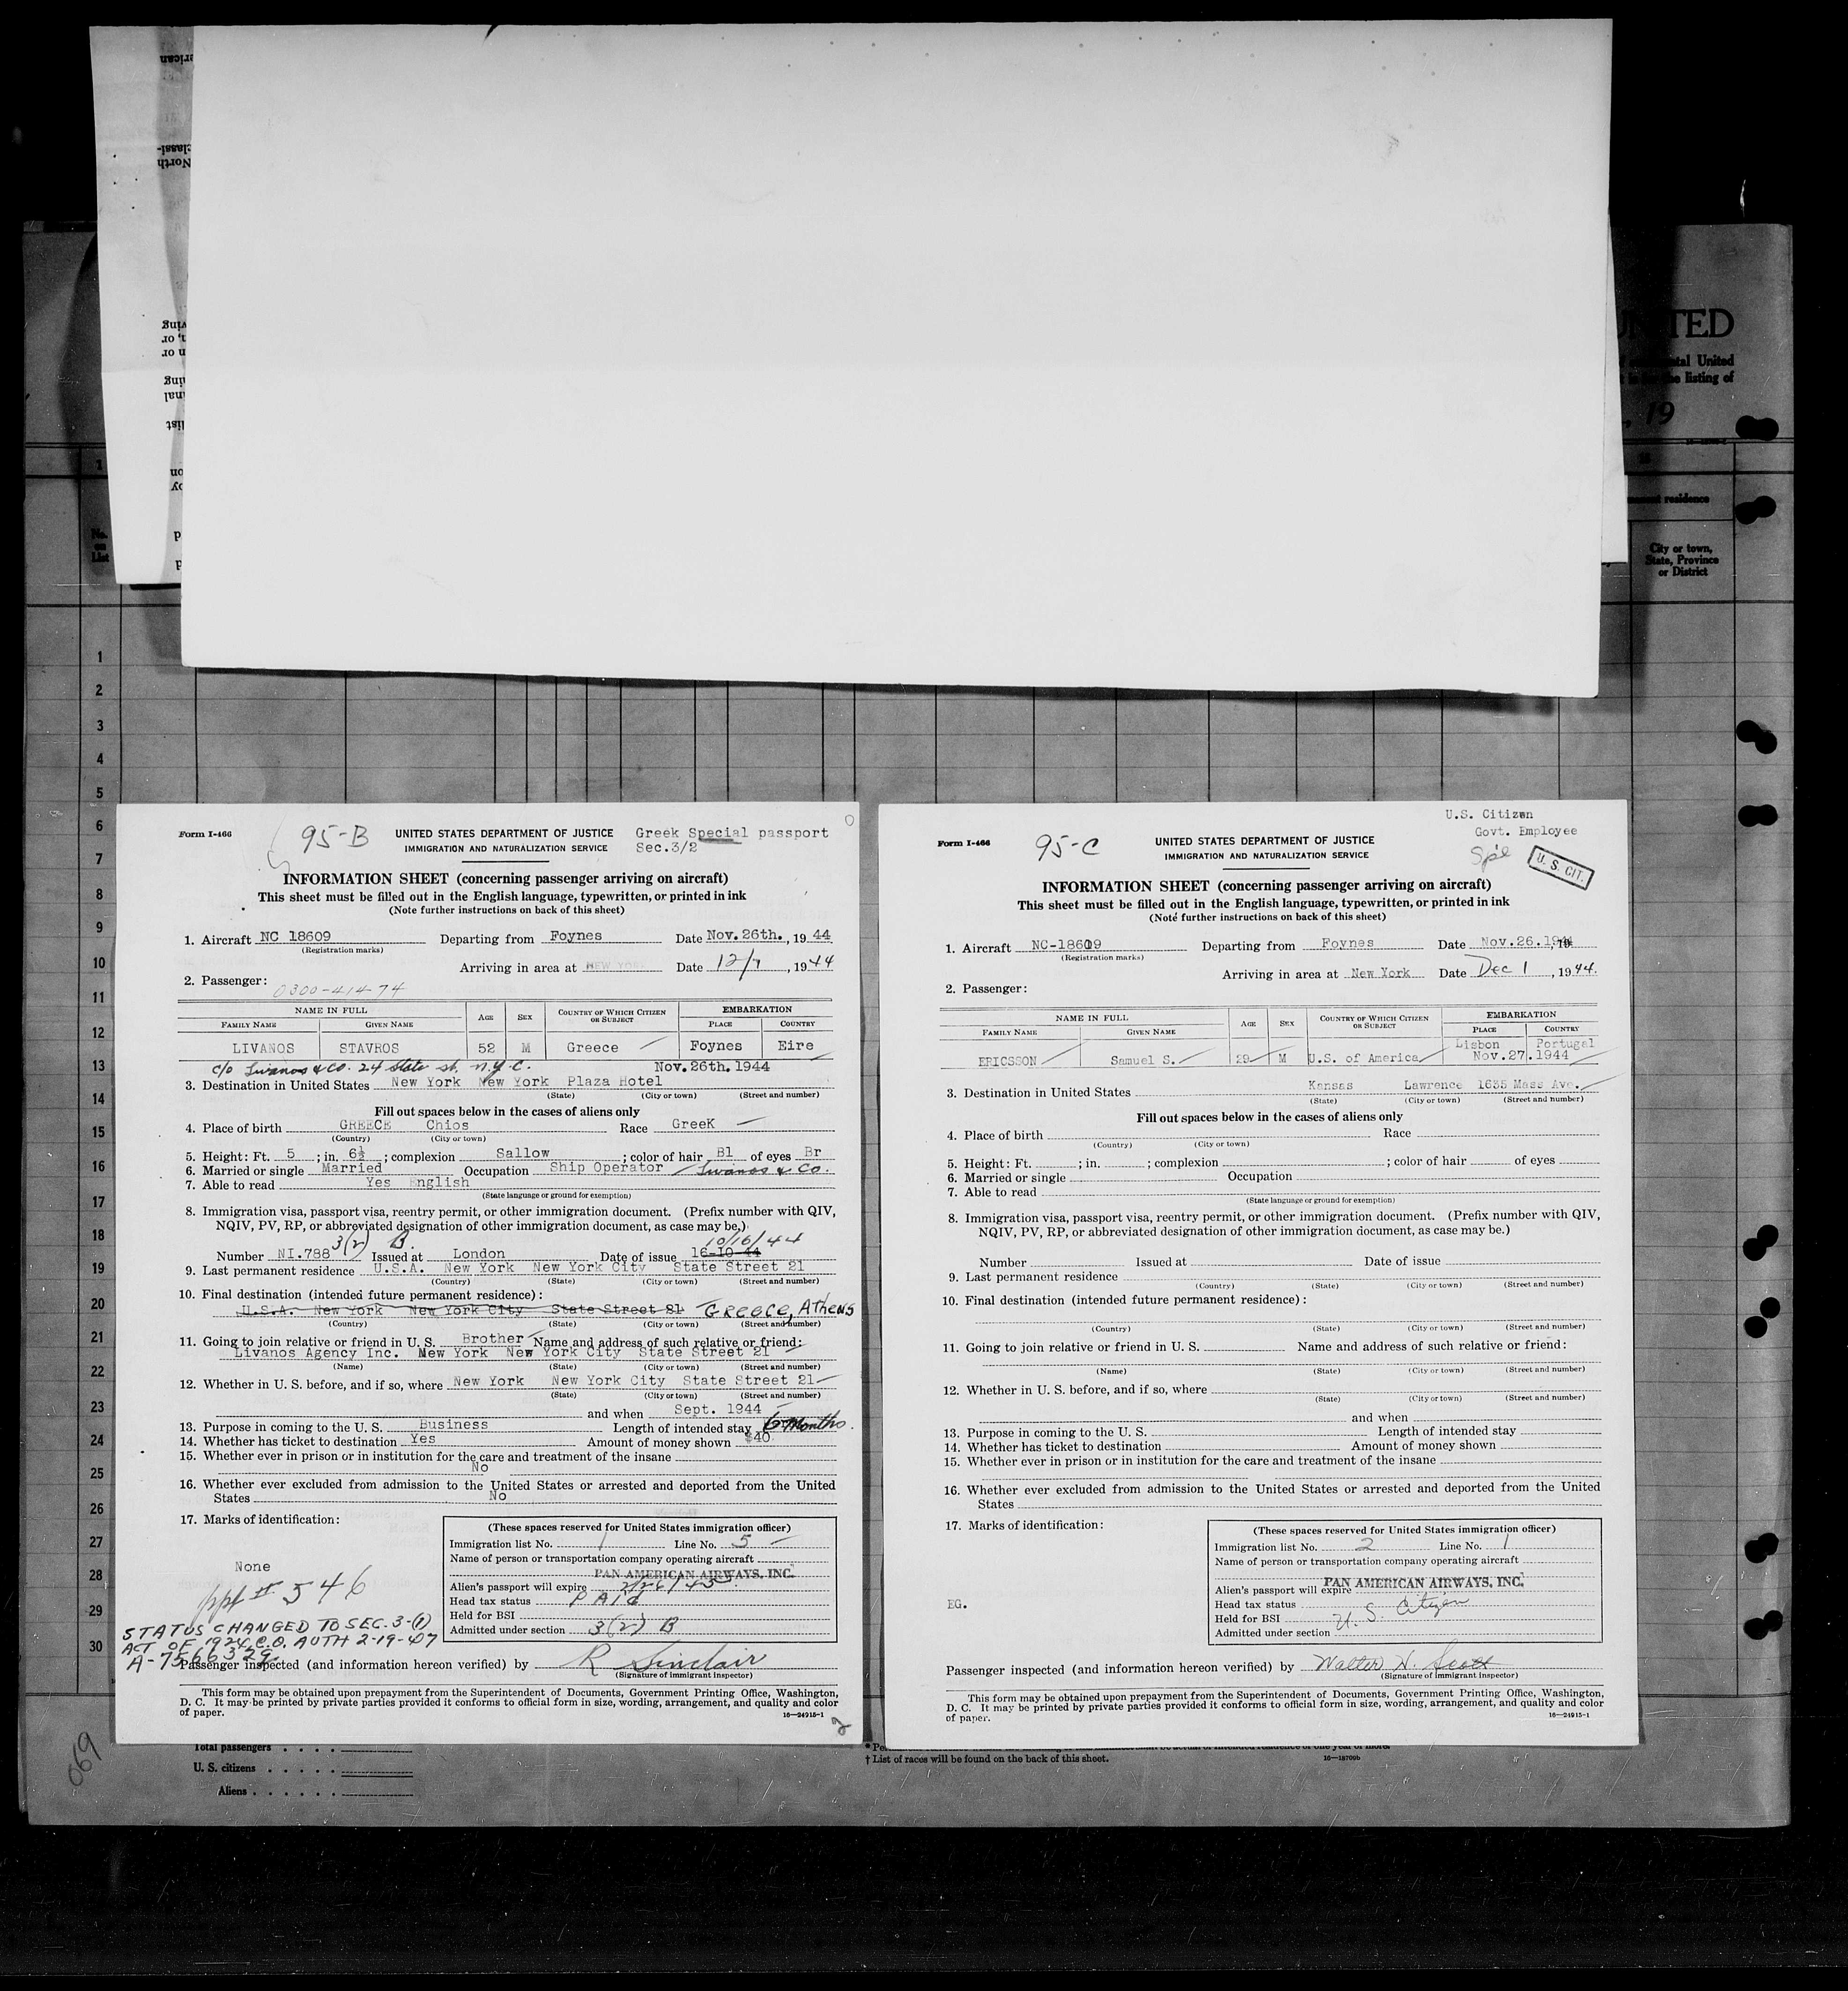 UNITED
United
listing of
, 19
residence
City or town,
State, Province
or District
No.
on
List
1
2
3
4
5
6
7
8
9
10
11
12
13
14
15
16
17
18
19
20
21
22
23
24
25
26
27
28
29
30
Form I-466
95-B
UNITED STATES DEPARTMENT OF JUSTICE
IMMIGRATION AND NATURALIZATION SERVICE
Greek Special passport
Sec.3/2
INFORMATION SHEET (concerning passenger arriving on aircraft)
This sheet must be filled out in the English language, typewritten, or printed in ink
(Note further instructions on back of this sheet)
1. Aircraft NC 18609 Departing from Foynes Date Nov. 26th., 19 44
(Registration marks)
Arriving in area at NEW YORK Date 12/1, 19 44
2. Passenger:
0300-41474
NAME IN FULL AGE SEX COUNTRY OF WHICH CITIZEN OR SUBJECT EMBARKATION
FAMILY NAME GIVEN NAME PLACE COUNTRY
LIVANOS STAVROS 52 M Greece Foynes Eire
c/o Livanos & Co. 24 State st. N.Y.C. Nov.26th.1944
3. Destination in United States New York New York Plaza Hotel
(State) (City or town) (Street and number)
Fill out spaces below in the cases of aliens only
4. Place of birth GREECE Chios Race GreeK
(Country) (City or town)
5. Height: Ft. 5; in. 6½; complexion Sallow; color of hair Bl of eyes Br
6. Married or single Married Occupation Ship Operator Livanos & Co.
7. Able to read Yes English
(State language or ground for exemption)
8. Immigration visa, passport visa, reentry permit, or other immigration document. (Prefix number with QIV,
NQIV, PV, RP, or abbreviated designation of other immigration document, as case may be.)
3(2) B. 10/16/44
Number NI.788 Issued at London Date of issue 16-10-44
9. Last permanent residence U.S.A. New York New York City State Street 21
(Country) (State) (City or town) (Street and number)
10. Final destination (intended future permanent residence):
U.S.A. New York New York City State Street 21 GREECE, AThens
(Country) (State) (City or town) (Street and number)
11. Going to join relative or friend in U. S. Brother Name and address of such relative or friend:
Livanos Agency Inc. New York New York City State Street 21
(Name) (State) (City or town) (Street and number)
12. Whether in U. S. before, and if so, where New York New York City State Street 21
(State) (City or town) (Street and number)
and when Sept. 1944
13. Purpose in coming to the U. S. Business Length of intended stay 6 Months.
14. Whether has ticket to destination Yes Amount of money shown $40.
15. Whether ever in prison or in institution for the care and treatment of the insane
No
16. Whether ever excluded from admission to the United States or arrested and deported from the United
States No
17. Marks of identification:
None
ppt # 546
STATUS CHANGED TO SEC. 3-(1)
ACT OF 1924 C.O. AUTH 2-19-47
A-7566329
(These spaces reserved for United States immigration officer)
Immigration list No. 1 Line No. 5
Name of person or transportation company operating aircraft
PAN AMERICAN AIRWAYS, INC.
Alien's passport will expire 2/26/45
Head tax status PAid
Held for BSI
Admitted under section 3(2) B
Passenger inspected (and information hereon verified) by R Sinclair
(Signature of immigrant inspector)
This form may be obtained upon prepayment from the Superintendent of Documents, Government Printing Office, Washington,
D. C. It may be printed by private parties provided it conforms to official form in size, wording, arrangement, and quality and color
of paper. 16—24915-1
2
Form I-466
95-C
UNITED STATES DEPARTMENT OF JUSTICE
IMMIGRATION AND NATURALIZATION SERVICE
U.S. Citizen
Govt. Employee
Spl
U. S. CIT.
INFORMATION SHEET (concerning passenger arriving on aircraft)
This sheet must be filled out in the English language, typewritten, or printed in ink
(Note further instructions on back of this sheet)
1. Aircraft NC-18609 Departing from Foynes Date Nov.26.1944
(Registration marks)
Arriving in area at New York Date Dec 1, 1944.
2. Passenger:
NAME IN FULL AGE SEX COUNTRY OF WHICH CITIZEN OR SUBJECT EMBARKATION
FAMILY NAME GIVEN NAME PLACE COUNTRY
Lisbon Portugal
ERICSSON Samuel S. 29 M U.S. of America Nov.27.1944
3. Destination in United States Kansas Lawrence 1635 Mass Ave.
(State) (City or town) (Street and number)
Fill out spaces below in the cases of aliens only
4. Place of birth Race
(Country) (City or town)
5. Height: Ft. ; in. ; complexion ; color of hair of eyes
6. Married or single Occupation
7. Able to read
(State language or ground for exemption)
8. Immigration visa, passport visa, reentry permit, or other immigration document. (Prefix number with QIV,
NQIV, PV, RP, or abbreviated designation of other immigration document, as case may be.)
Number Issued at Date of issue
9. Last permanent residence
(Country) (State) (City or town) (Street and number)
10. Final destination (intended future permanent residence):
(Country) (State) (City or town) (Street and number)
11. Going to join relative or friend in U. S. Name and address of such relative or friend:
(Name) (State) (City or town) (Street and number)
12. Whether in U. S. before, and if so, where
(State) (City or town) (Street and number)
and when
13. Purpose in coming to the U. S. Length of intended stay
14. Whether has ticket to destination Amount of money shown
15. Whether ever in prison or in institution for the care and treatment of the insane
16. Whether ever excluded from admission to the United States or arrested and deported from the United
States
17. Marks of identification:
EG.
(These spaces reserved for United States immigration officer)
Immigration list No. 2 Line No. 1
Name of person or transportation company operating aircraft
PAN AMERICAN AIRWAYS, INC.
Alien's passport will expire
Head tax status
Held for BSI U. S. Citizen
Admitted under section
Passenger inspected (and information hereon verified) by Walter N. Scott
(Signature of immigrant inspector)
This form may be obtained upon prepayment from the Superintendent of Documents, Government Printing Office, Washington,
D. C. It may be printed by private parties provided it conforms to official form in size, wording, arrangement, and quality and color
of paper. 16—24915-1
069
Total passengers
U. S. citizens
Aliens
† List of races will be found on the back of this sheet. 16—18709b